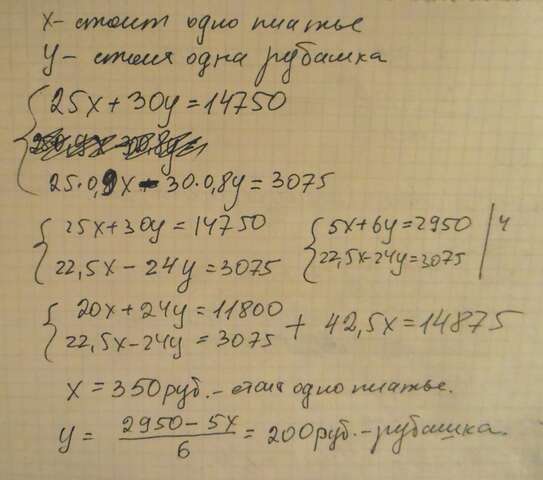 x- стоит одно платье
y- стоит одна рубашка
25x + 30y = 14750
25·0,9x - 30·0,8y = 3075
25x+30y = 14750
22,5x - 24y = 3075
5x+6y=2950 | 4
22,5x-24y=3075
20x + 24y = 11800
22,5x-24y = 3075
+ 42,5x=14875
x = 350 руб.- стоит одно платье.
y = 2950-5x / 6 = 200 руб.- рубашка.